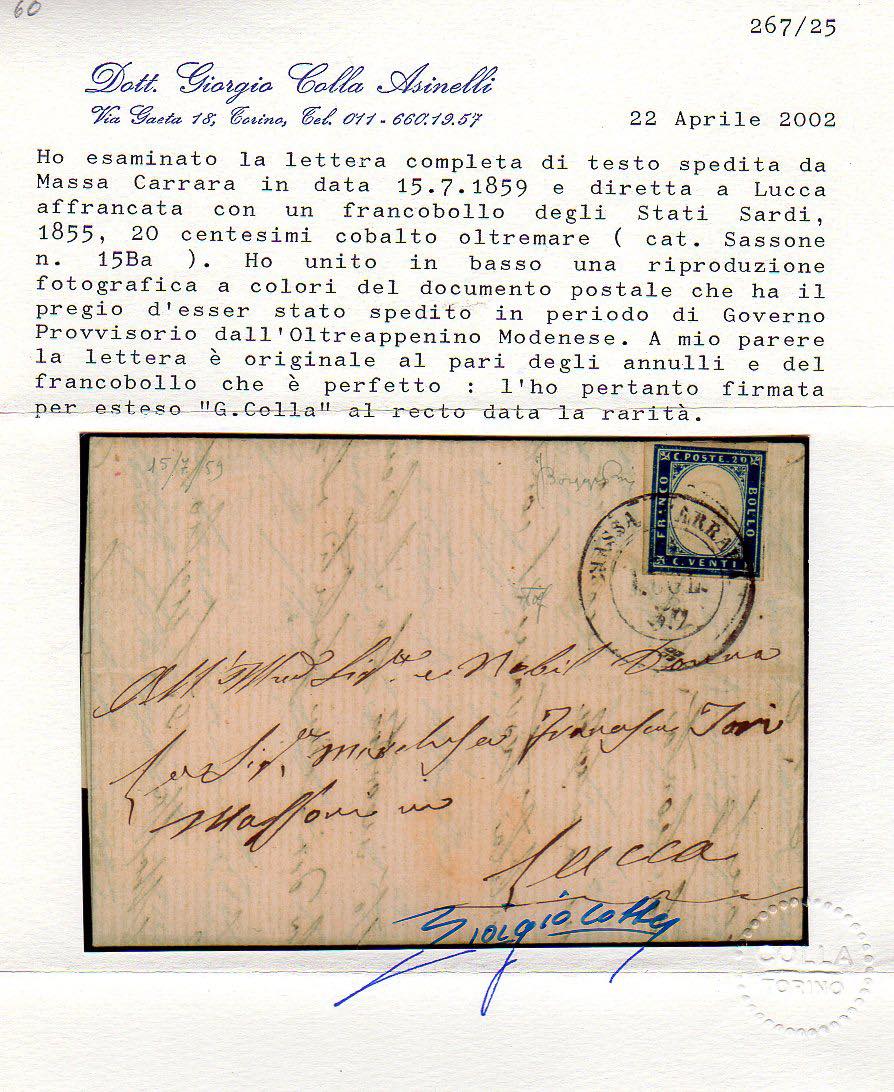 60
267/25
Dott. Giorgio Colla Asinelli
Via Gaeta 18, Torino, Tel. 011-660.19.57
22 Aprile 2002
Ho esaminato la lettera completa di testo spedita da
Massa Carrara in data 15.7.1859 e diretta a Lucca
affrancata con un francobollo degli Stati Sardi,
1855, 20 centesimi cobalto oltremare ( cat. Sassone
n. 15Ba ). Ho unito in basso una riproduzione
fotografica a colori del documento postale che ha il
pregio d'esser stato spedito in periodo di Governo
Provvisorio dall'Oltreappenino Modenese. A mio parere
la lettera è originale al pari degli annulli e del
francobollo che è perfetto : l'ho pertanto firmata
per esteso "G.Colla" al recto data la rarità.
15/7/59
C. POSTE. 20
FRANCO
BOLLO
C. VENTI
MASSA CARRARA
59
Nobil Donna
Francesca
in
Lucca
Giorgio Colla
COLLA
TORINO